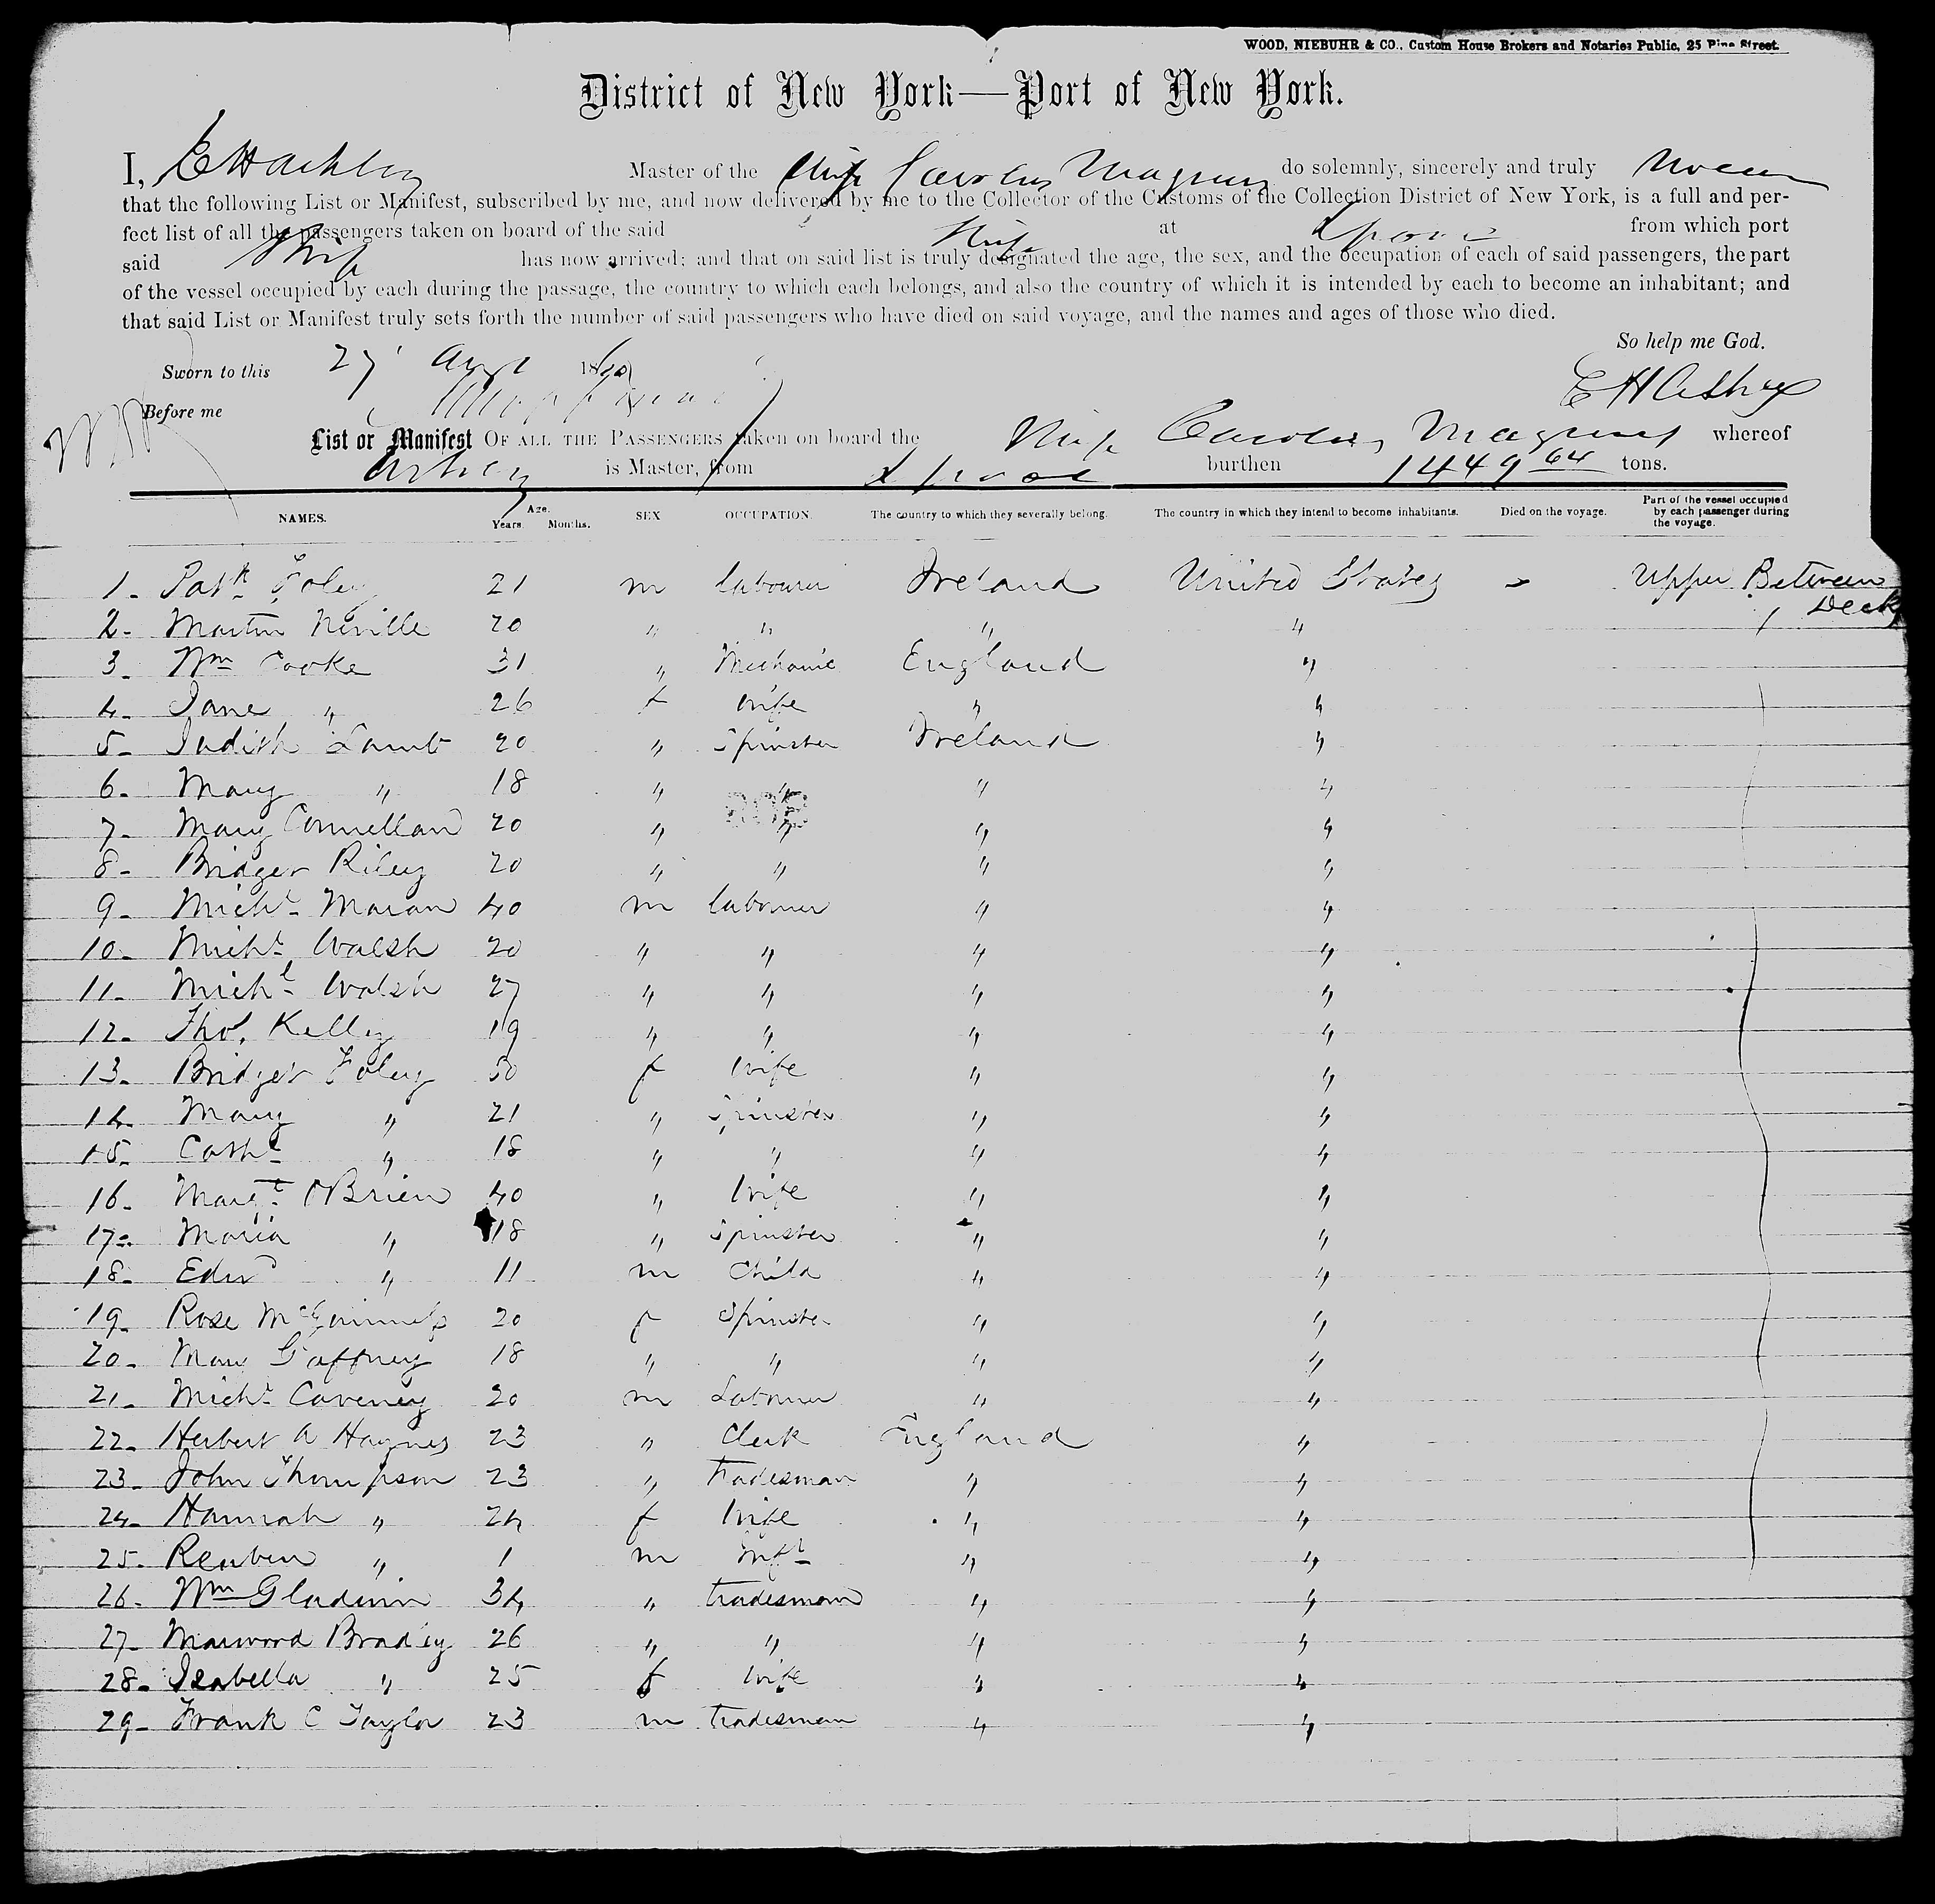 WOOD, NIEBUHR & CO., Custom House Brokers and Notaries Public, 25 Pine Street.
District of New York—Port of New York.
I, Master of the Ship Carolus Magnus do solemnly, sincerely and truly
that the following List or Manifest, subscribed by me, and now delivered by me to the Collector of the Customs of the Collection District of New York, is a full and per-
fect list of all the passengers taken on board of the said Ship at Lpool from which port
said Ship has now arrived; and that on said list is truly designated the age, the sex, and the occupation of each of said passengers, the part
of the vessel occupied by each during the passage, the country to which each belongs, and also the country of which it is intended by each to become an inhabitant; and
that said List or Manifest truly sets forth the number of said passengers who have died on said voyage, and the names and ages of those who died.
So help me God.
Sworn to this 27
Before me
List or Manifest OF ALL THE PASSENGERS taken on board the Ship Carolus Magnus whereof
is Master, from Lpool burthen 1449 64 tons.
NAMES. Age. Years. Months. SEX OCCUPATION. The country to which they severally belong. The country in which they intend to become inhabitants. Died on the voyage. Part of the vessel occupied by each passenger during the voyage.
1. Patk Foley 21 m labourer Ireland United States - Upper Between Decks
2. Martin Neville 20 " " " "
3. Wm Cooke 31 " Mechanic England "
4. Jane " 26 f wife " "
5. Judith Lamb 20 " Spinster Ireland "
6. Mary " 18 " " " "
7. Mary Connellan 20 " " " "
8. Bridget Riley 20 " " " "
9. Michl Moran 40 m labourer " "
10. Michl Walsh 20 " " " "
11. Michl Walsh 27 " " " "
12. Thos. Kelly 19 " " " "
13. Bridget Foley 50 f wife " "
14. Mary " 21 " Spinster " "
15. Cathe " 18 " " " "
16. Margt OBrien 40 " wife " "
17. Maria " 18 " Spinster " "
18. Edwd " 11 m Child " "
19. Rose McGuinness 20 f Spinster " "
20. Mary Gaffney 18 " " " "
21. Michl Caveney 20 m Labourer " "
22. Herbert A Haynes 23 " Clerk England "
23. John Thompson 23 " Tradesman " "
24. Hannah " 24 f Wife " "
25. Reuben " 1 m Inft " "
26. Wm Gladwin 34 " tradesman " "
27. Marwood Bradley 26 " " " "
28. Isabella " 25 f wife " "
29. Frank C Taylor 23 m tradesman " "